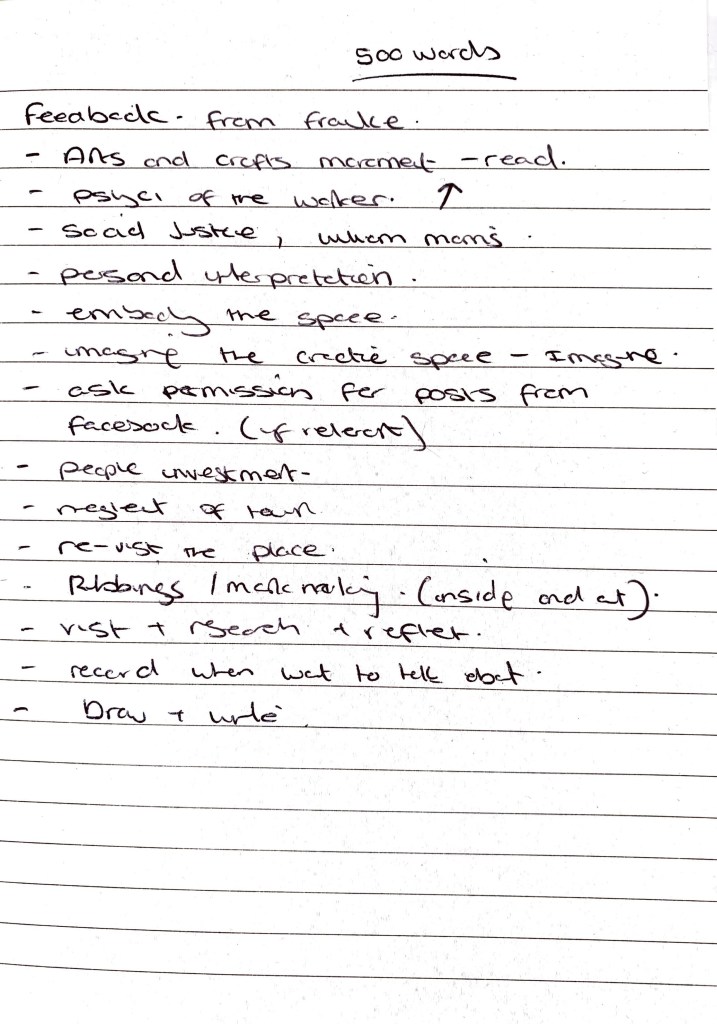 500 words
Feedback. from frauke.
- Arts and crafts movement - read.
- of the worker. ↑
- Social Justice, William Morris.
- personal interpretation.
- embody the space.
- imagine the creative space - Imagine.
- ask permission for posts from
facebook. (if relevant)
- people investment-
- neglect of town
- re-visit the place.
- Rubbings / mark making. (inside and out).
- visit + research + reflect.
- record when want to talk about.
- Draw + write.